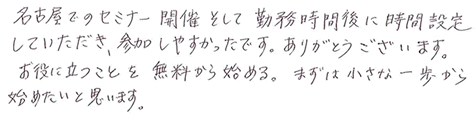 名古屋でのセミナー開催そして勤務時間後に時間設定
していただき、参加しやすかったです。ありがとうございます。
お役に立つことを無料から始める。まずは小さな一歩から
始めたいと思います。